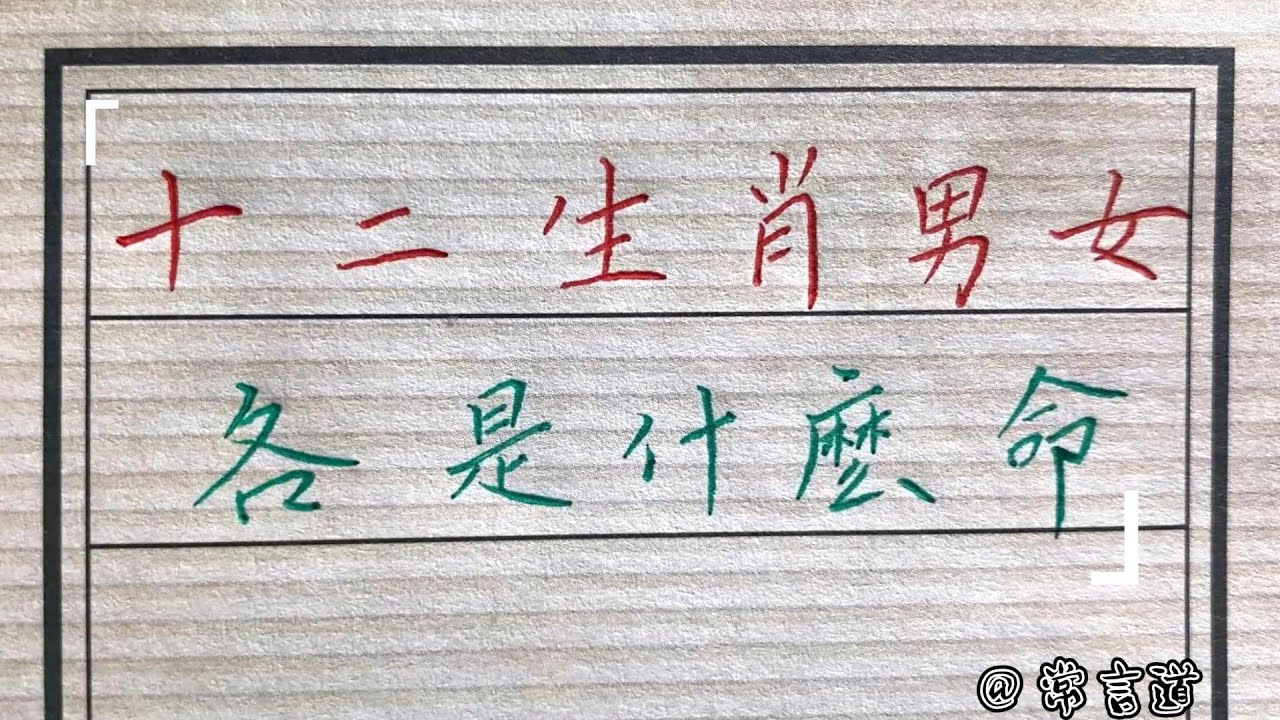 十二生肖男女
各是什麼命
@常言道